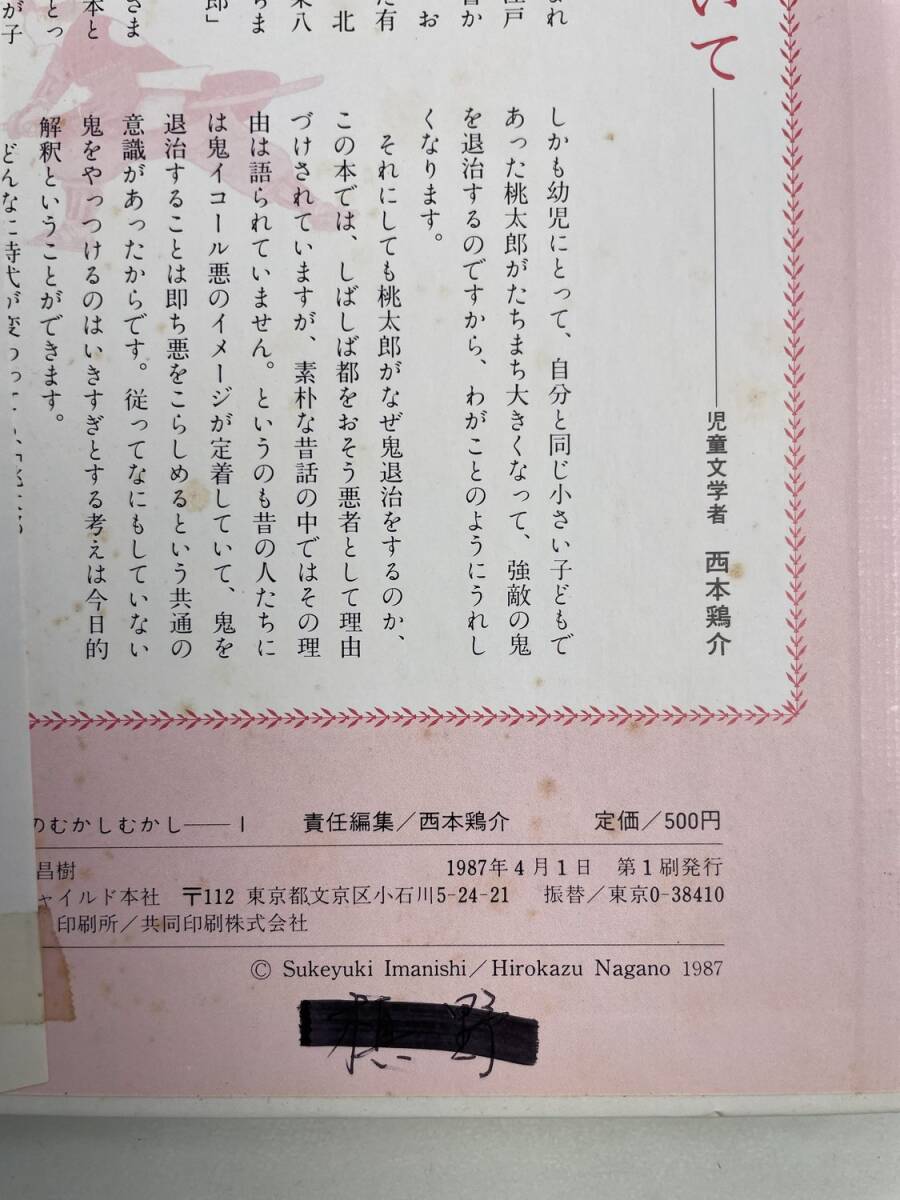 いて
児童文学者　西本鶏介
しかも幼児にとって、自分と同じ小さい子どもで
あった桃太郎がたちまち大きくなって、強敵の鬼
を退治するのですから、わがことのようにうれし
くなります。
それにしても桃太郎がなぜ鬼退治をするのか、
この本では、しばしば都をおそう悪者として理由
づけされていますが、素朴な昔話の中ではその理
由は語られていません。というのも昔の人たちに
は鬼イコール悪のイメージが定着していて、鬼を
退治することは即ち悪をこらしめるという共通の
意識があったからです。従ってなにもしていない
鬼をやっつけるのはいきすぎとする考えは今日的
解釈ということができます。
どんなに時代が変わっても、
のむかしむかし――1　責任編集／西本鶏介　定価／500円
昌樹　1987年4月1日　第1刷発行
ャイルド本社　〒112 東京都文京区小石川5-24-21　振替／東京0-38410
印刷所／共同印刷株式会社
© Sukeyuki Imanishi／Hirokazu Nagano 1987